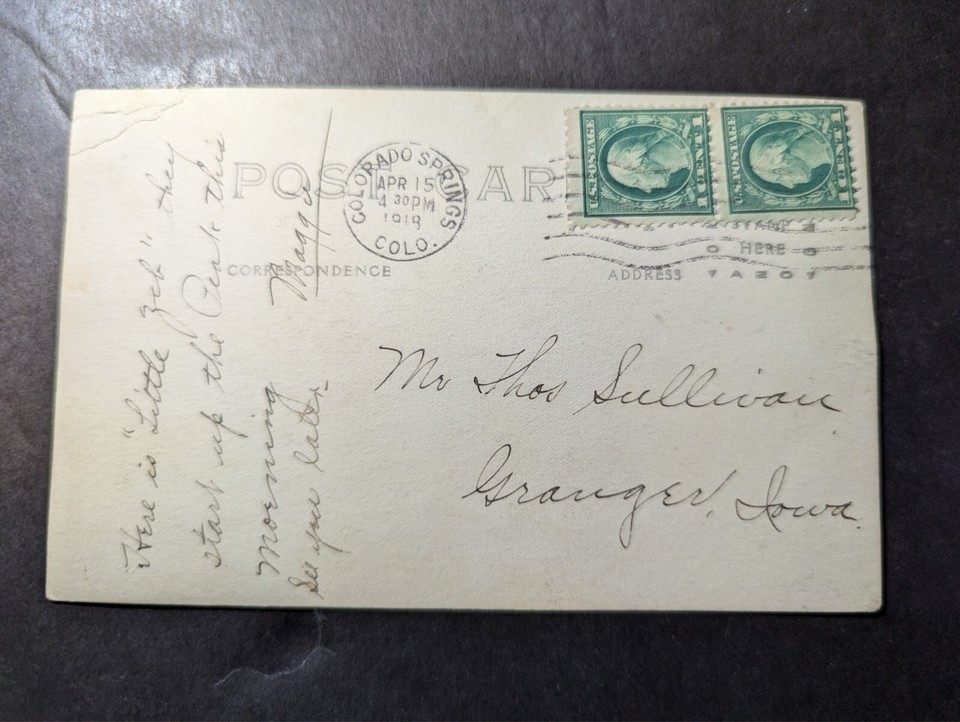 POST CAR
COLORADO SPRINGS
APR 15
4 30 PM
1918
COLO.
U.S. POSTAGE
U.S. POSTAGE
HERE
CORRESPONDENCE
ADDRESS
Here is "Little zeb" they
start up the Peak this
morning
See you later
Maggie
Mr Thos Sullivan
Granger, Iowa.